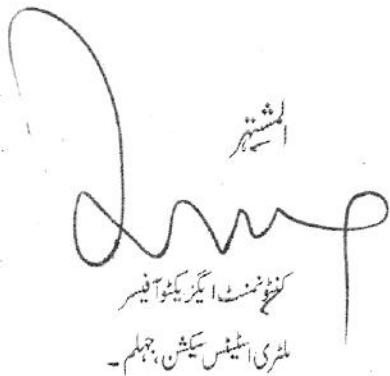 المشتہر
کنٹونمنٹ ایگزیکٹو آفیسر
ملٹری اسٹیٹس سیکشن، جہلم ۔